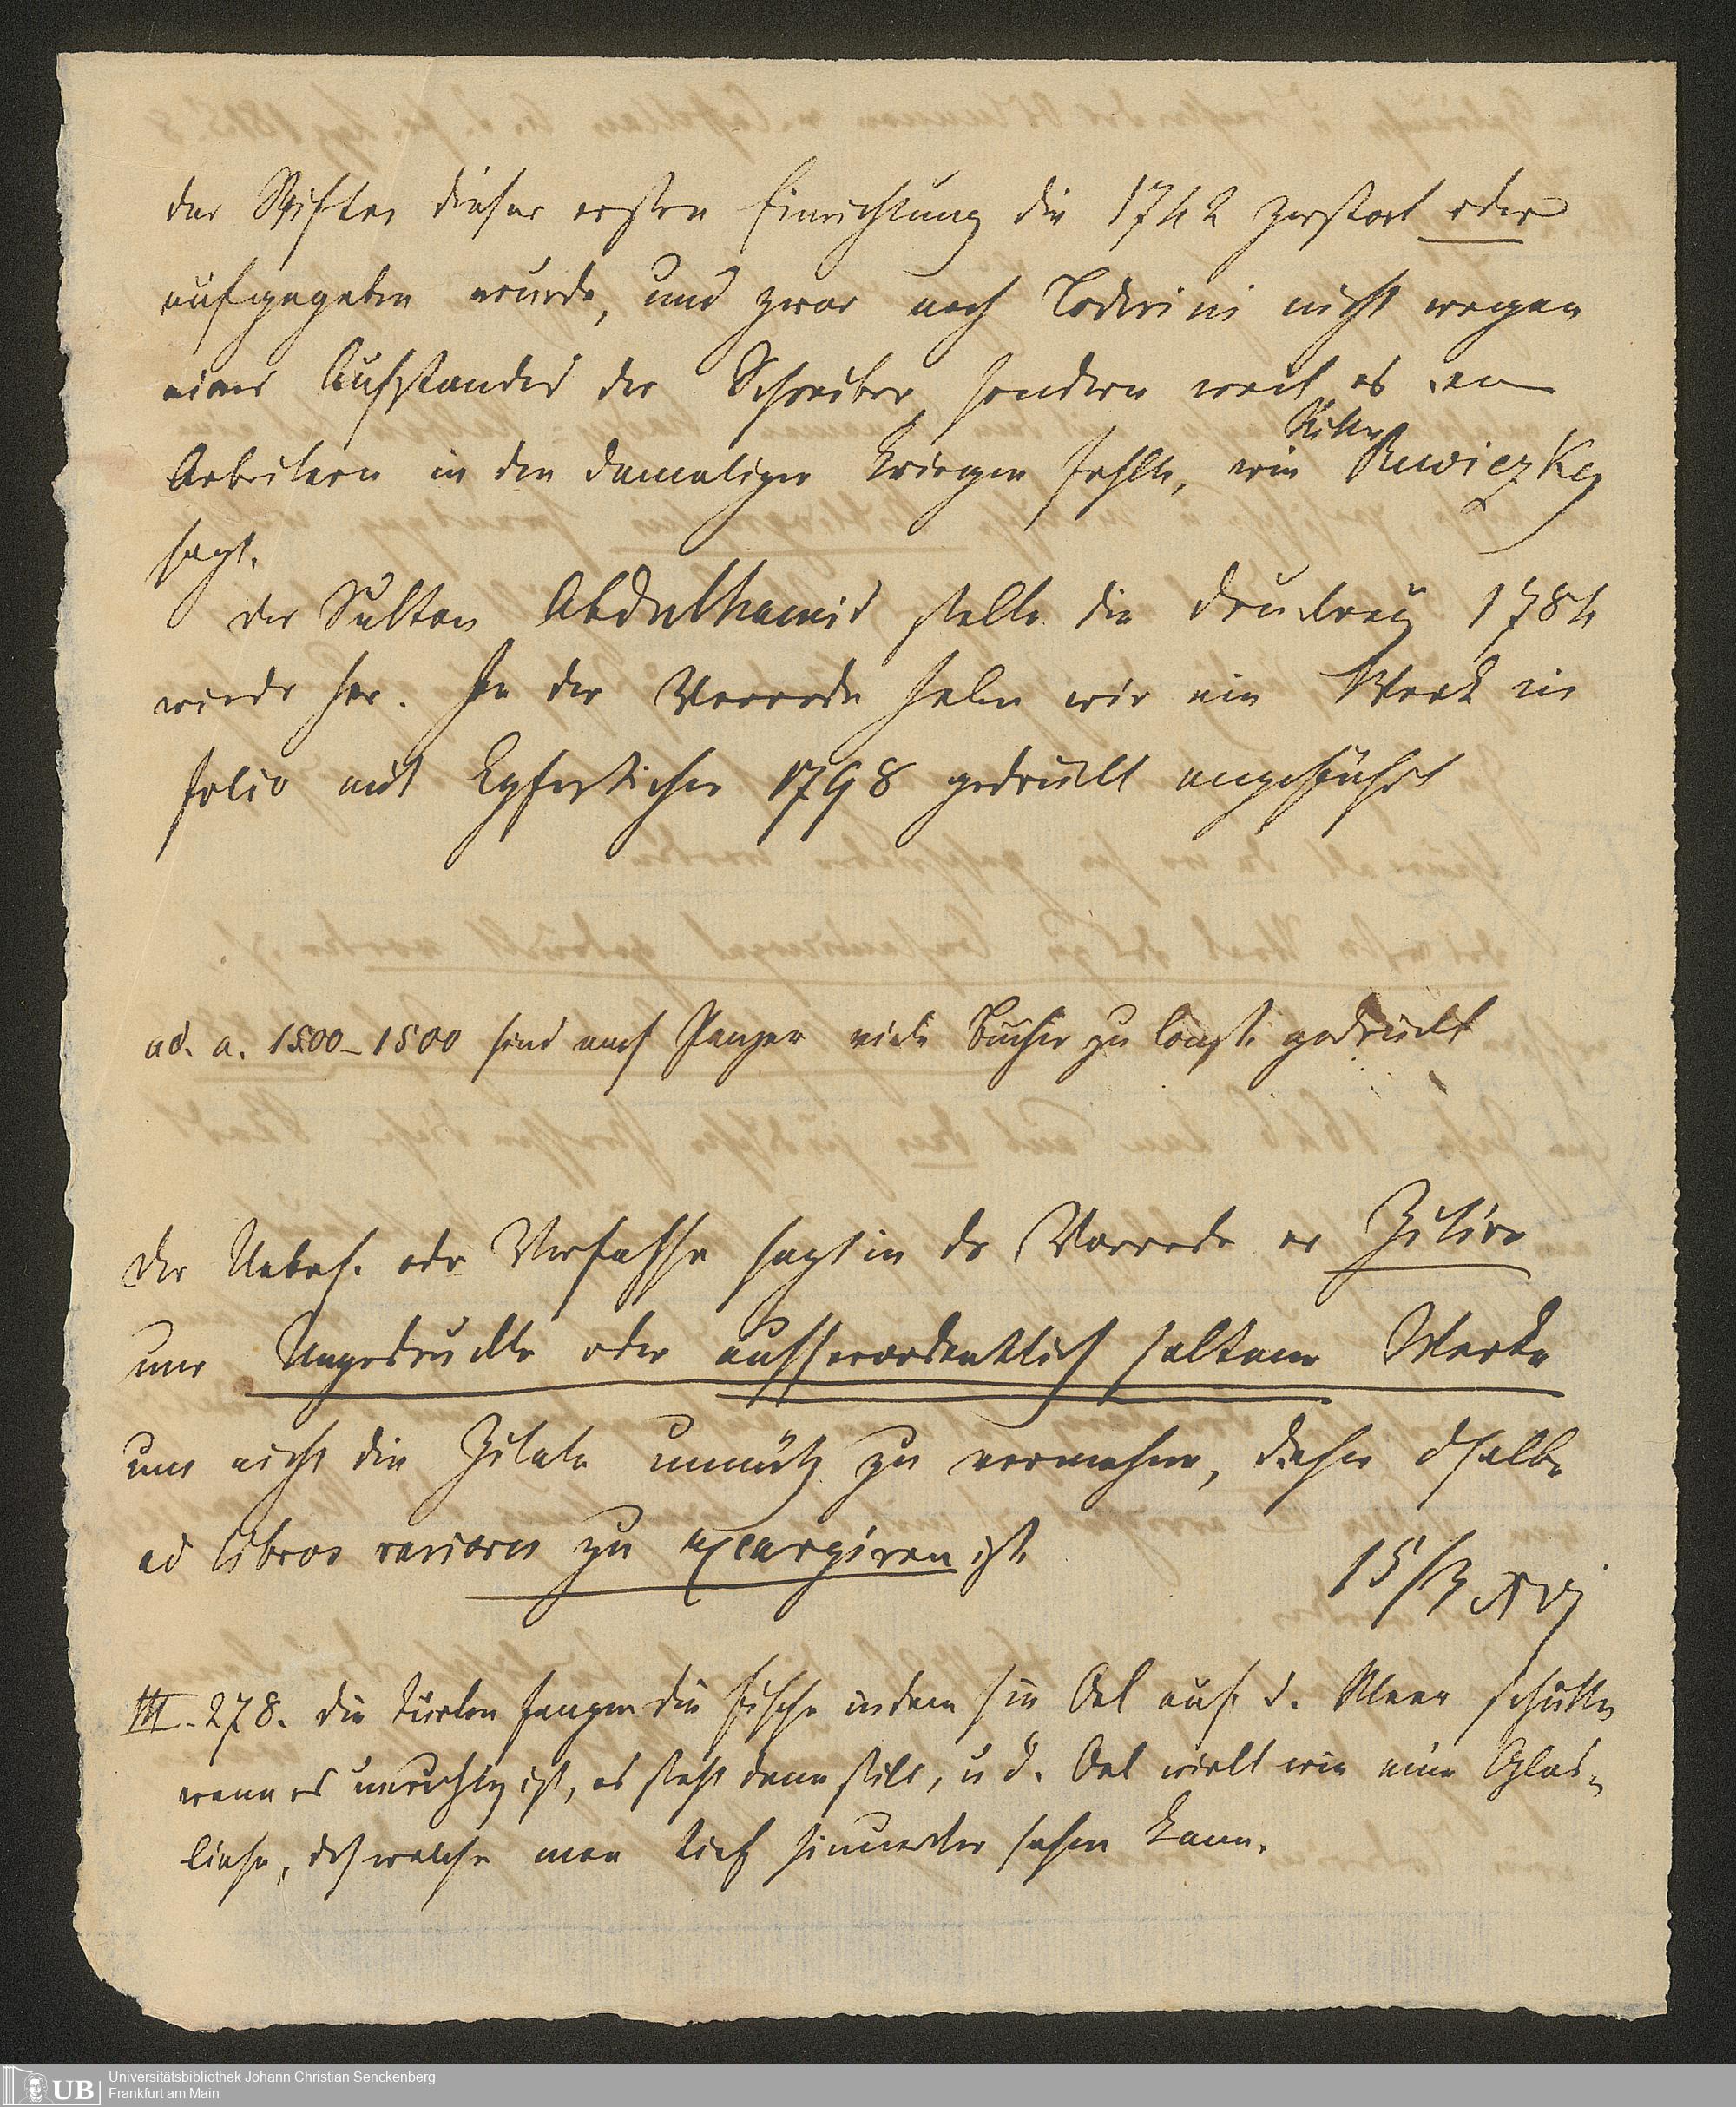 der Stifter dieser ersten Einrichtung die 1742 zerstört oder
aufgegeben wurde, und zwar nach Toderini nicht wegen
eines Aufstandes der Schreiber sondern weil es an
Arbeitern in den damaligen Kriegen fehlte, wie Ritter Rewiczky
sagt.
Der Sultan Abdulhamid stellte die Druckrey 1784
wieder her. In der Vorrede sehn wir ein Werk in
folio mit Kpferstichen 1798 gedruckt angeführt
ad. a. 1500–1500 sind nach Panzer viele Bücher zu Const. gedruckt
Der Uebers. oder Verfasser sagt in der Vorrede er Zitire
nur Ungedruckte oder ausserordentlich seltene Werke
um nicht die Zitate unnütz zu vermehren, daher dsselbe
ad libros rariores zu excerpiren ist.
15/3 XVI
III. 278. die Türken fangen die Fische indem sie Oel auf d. Meer schütten
wenn es unruhig ist, es steht dann still, u d. Oel wirkt wie eine Glas-
linse, dch welche man tief hinunter sehen kann.
Universitätsbibliothek Johann Christian Senckenberg
Frankfurt am Main
UB